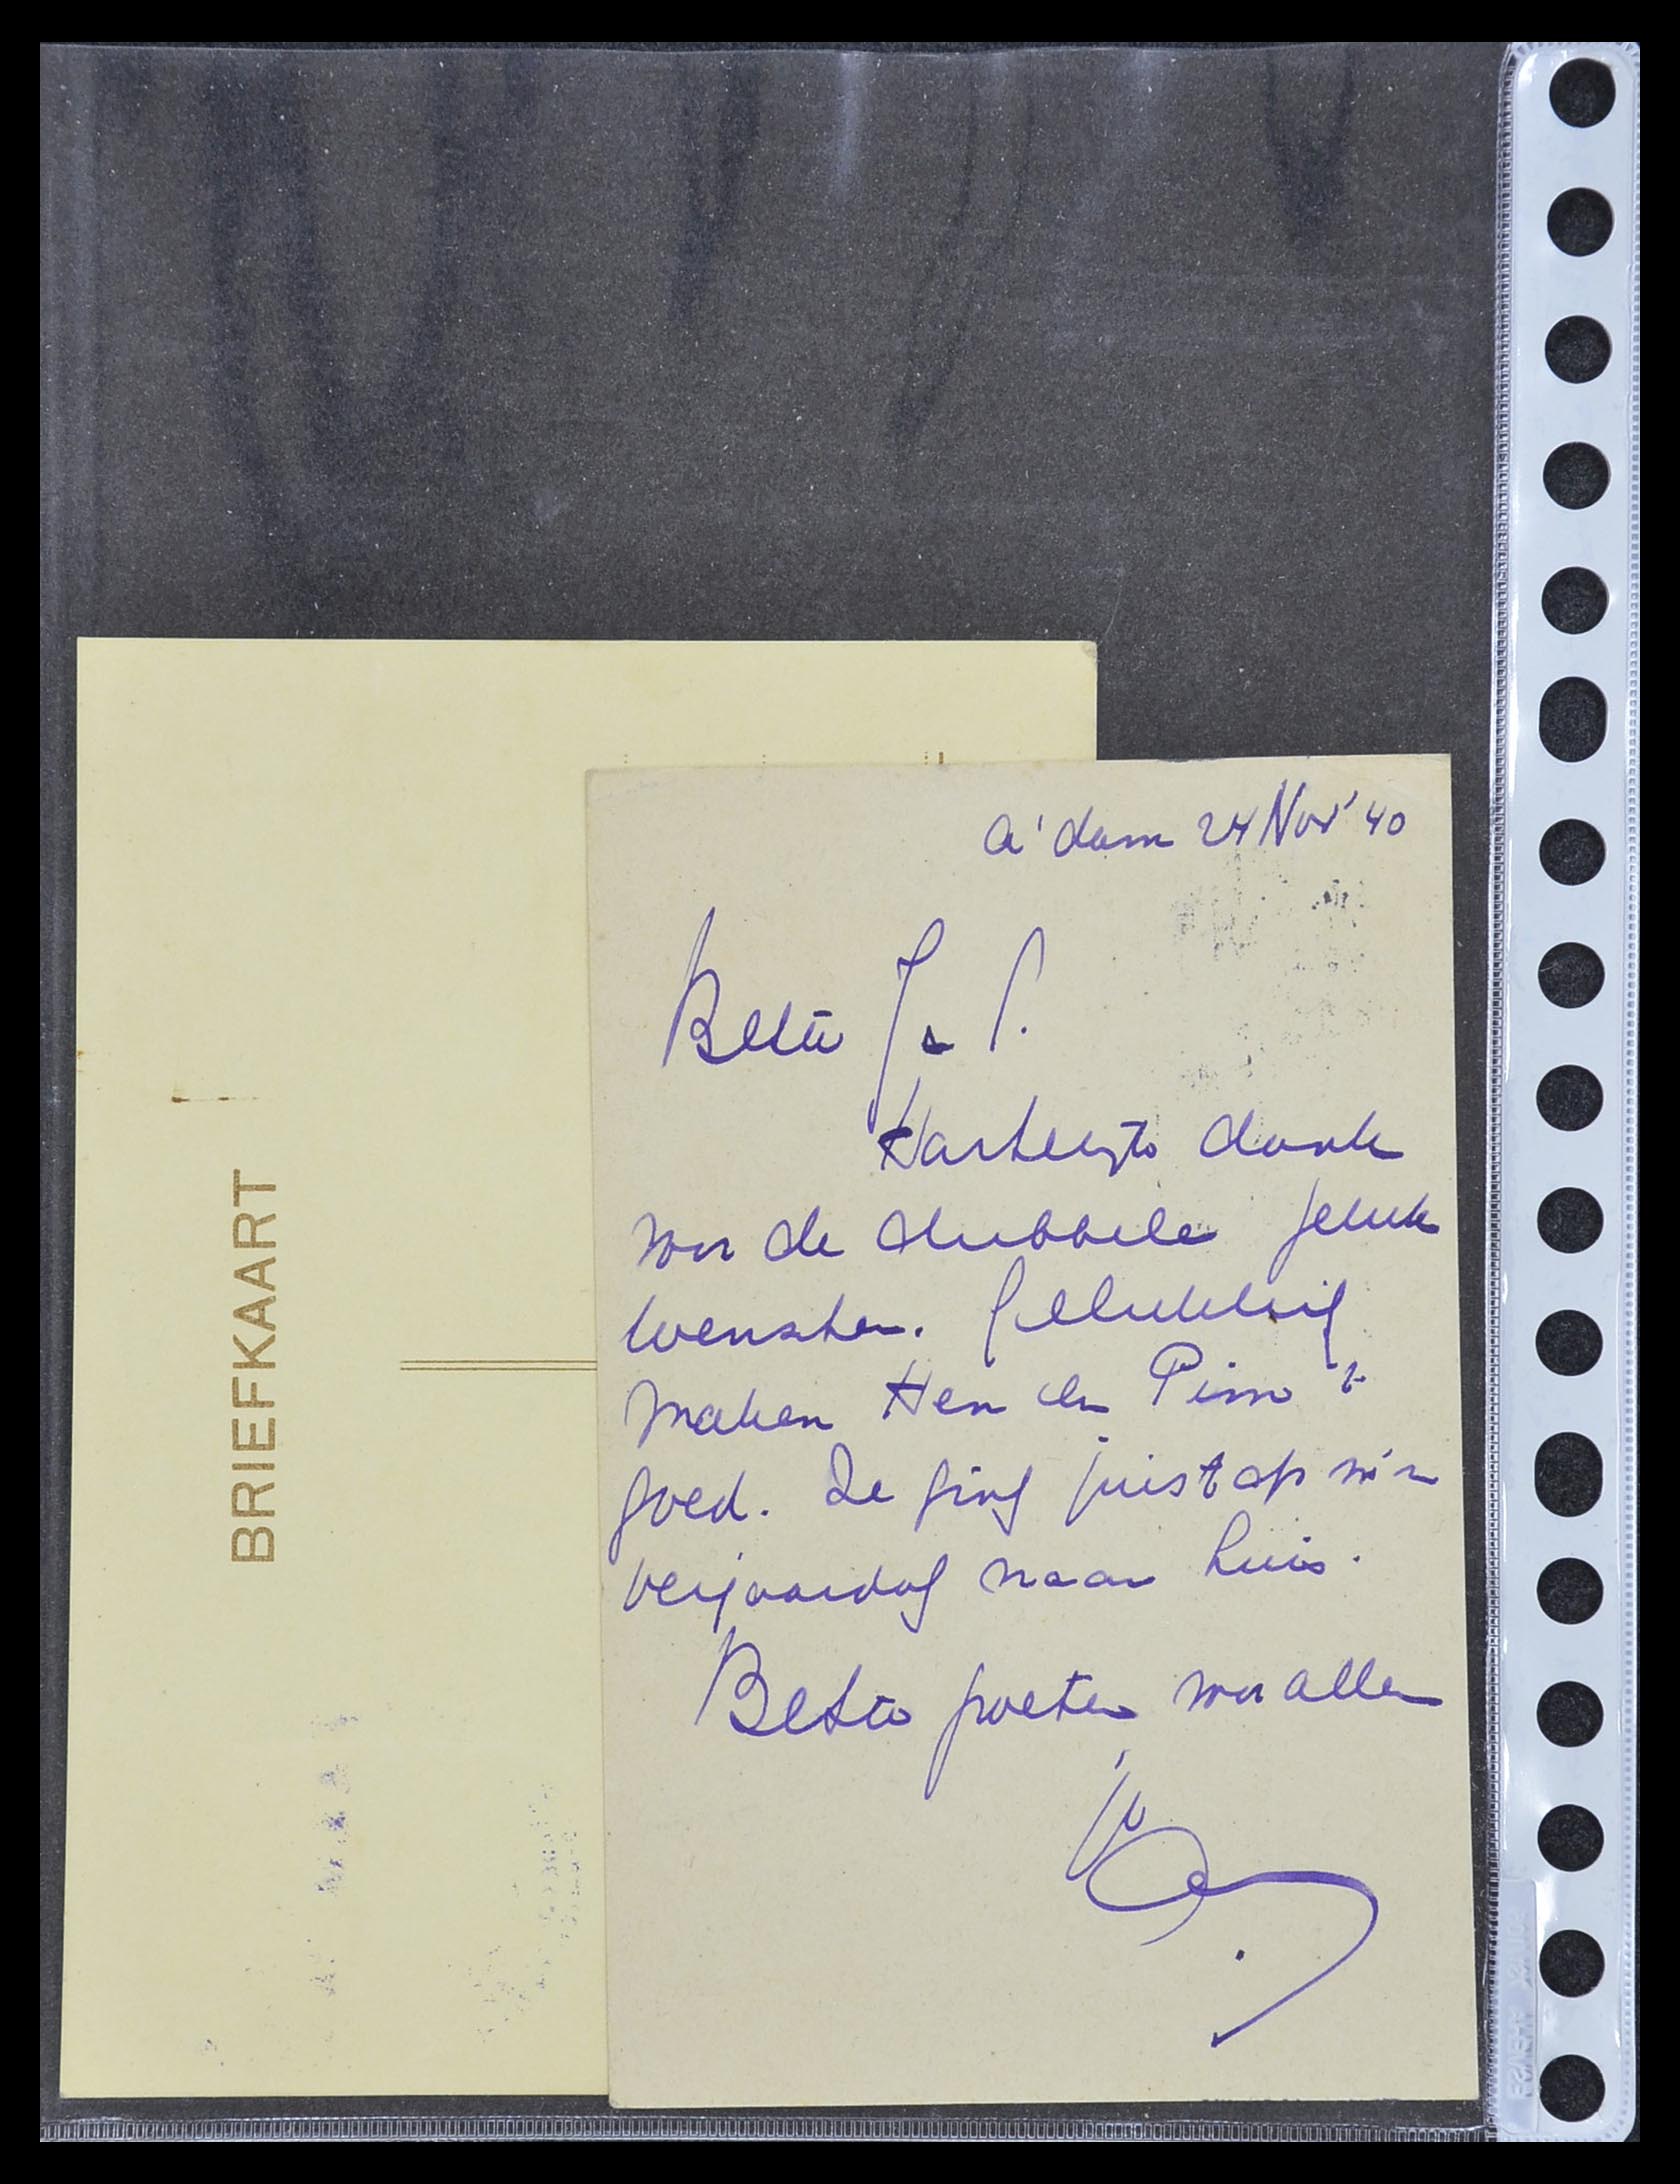 BRIEFKAART
A'dam 24 Nov '40
Beste J. P.
Hartelijk dank
voor de dubbele geluk
wenschen. Gelukkig
maken Hen en Pim 't
goed. Ze ging juist op m'n
verjaardag naar huis.
Beste groeten voor allen